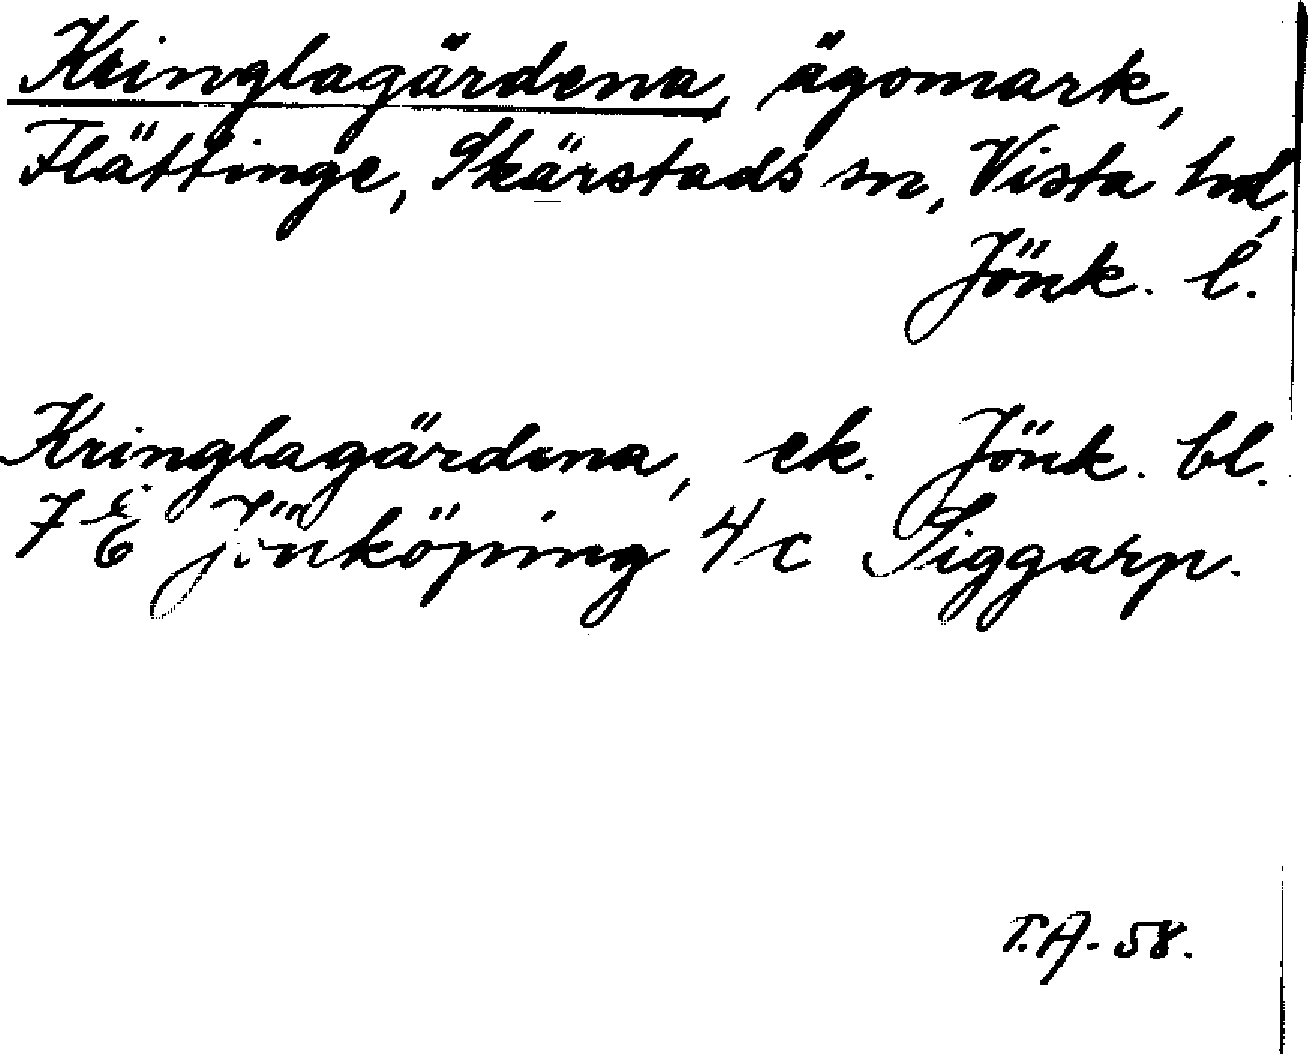 Kringlagärdena, ägomark,
Flättinge, Skärstads sn, Vista hd,
Jönk. l.
Kringlagärdena, ek. Jönk. bl.
7 E Jönköping 4 c Siggarp.
T.A. 58.